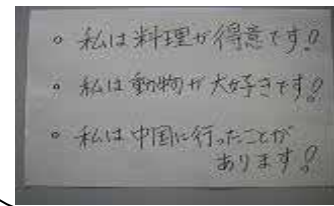 。私は料理が得意です!
。私は動物が大好きです!
。私は中国に行ったことが
あります!